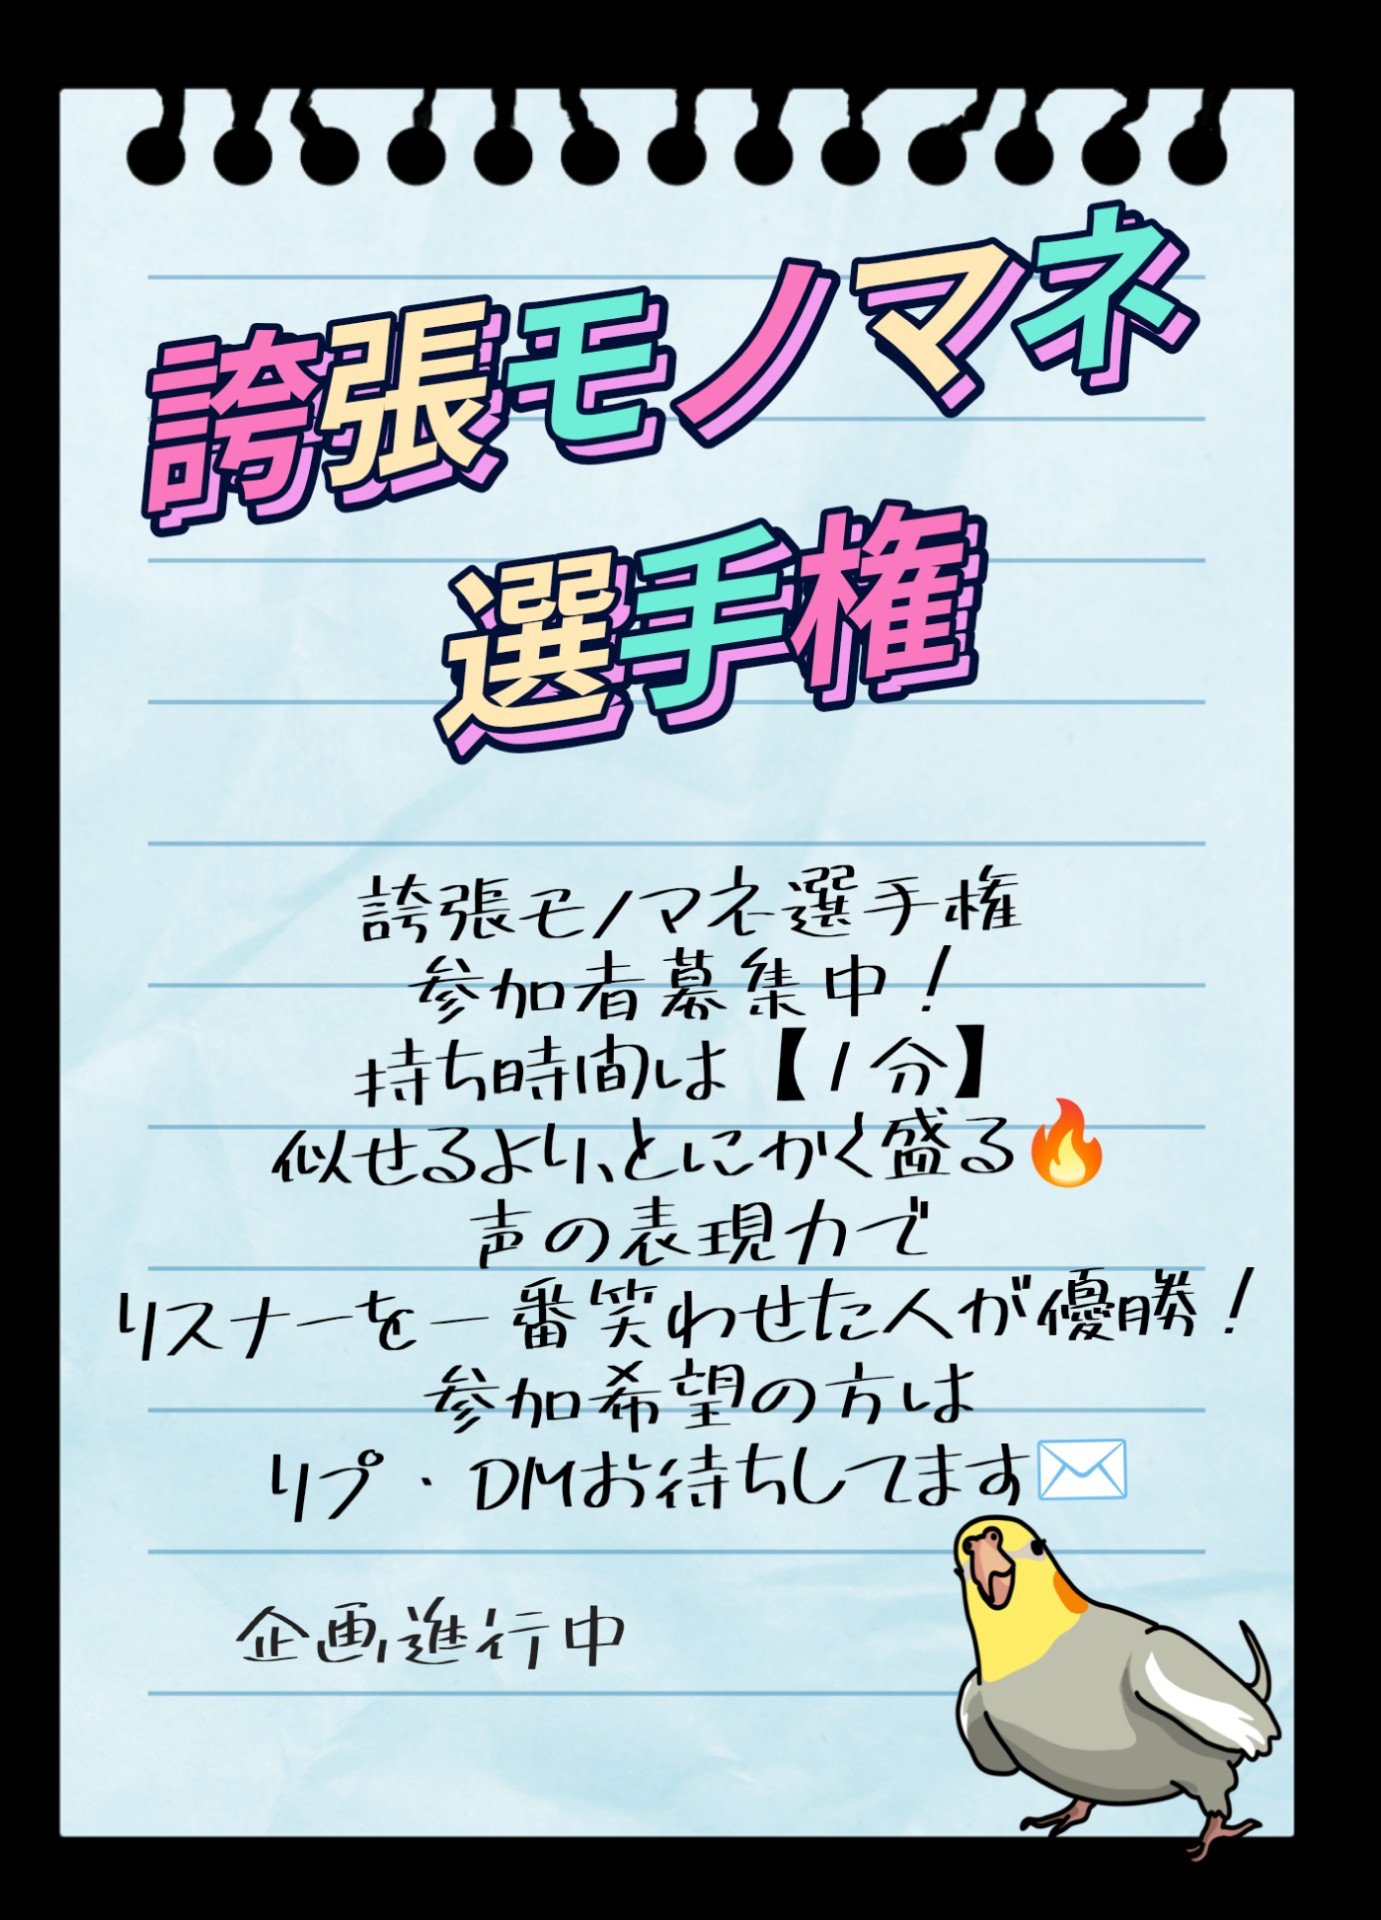 誇張モノマネ
選手権
誇張モノマネ選手権
参加者募集中！
持ち時間は【1分】
似せるより、とにかく盛る🔥
声の表現力で
リスナーを一番笑わせた人が優勝！
参加希望の方は
リプ・DMお待ちしてます✉️
企画進行中